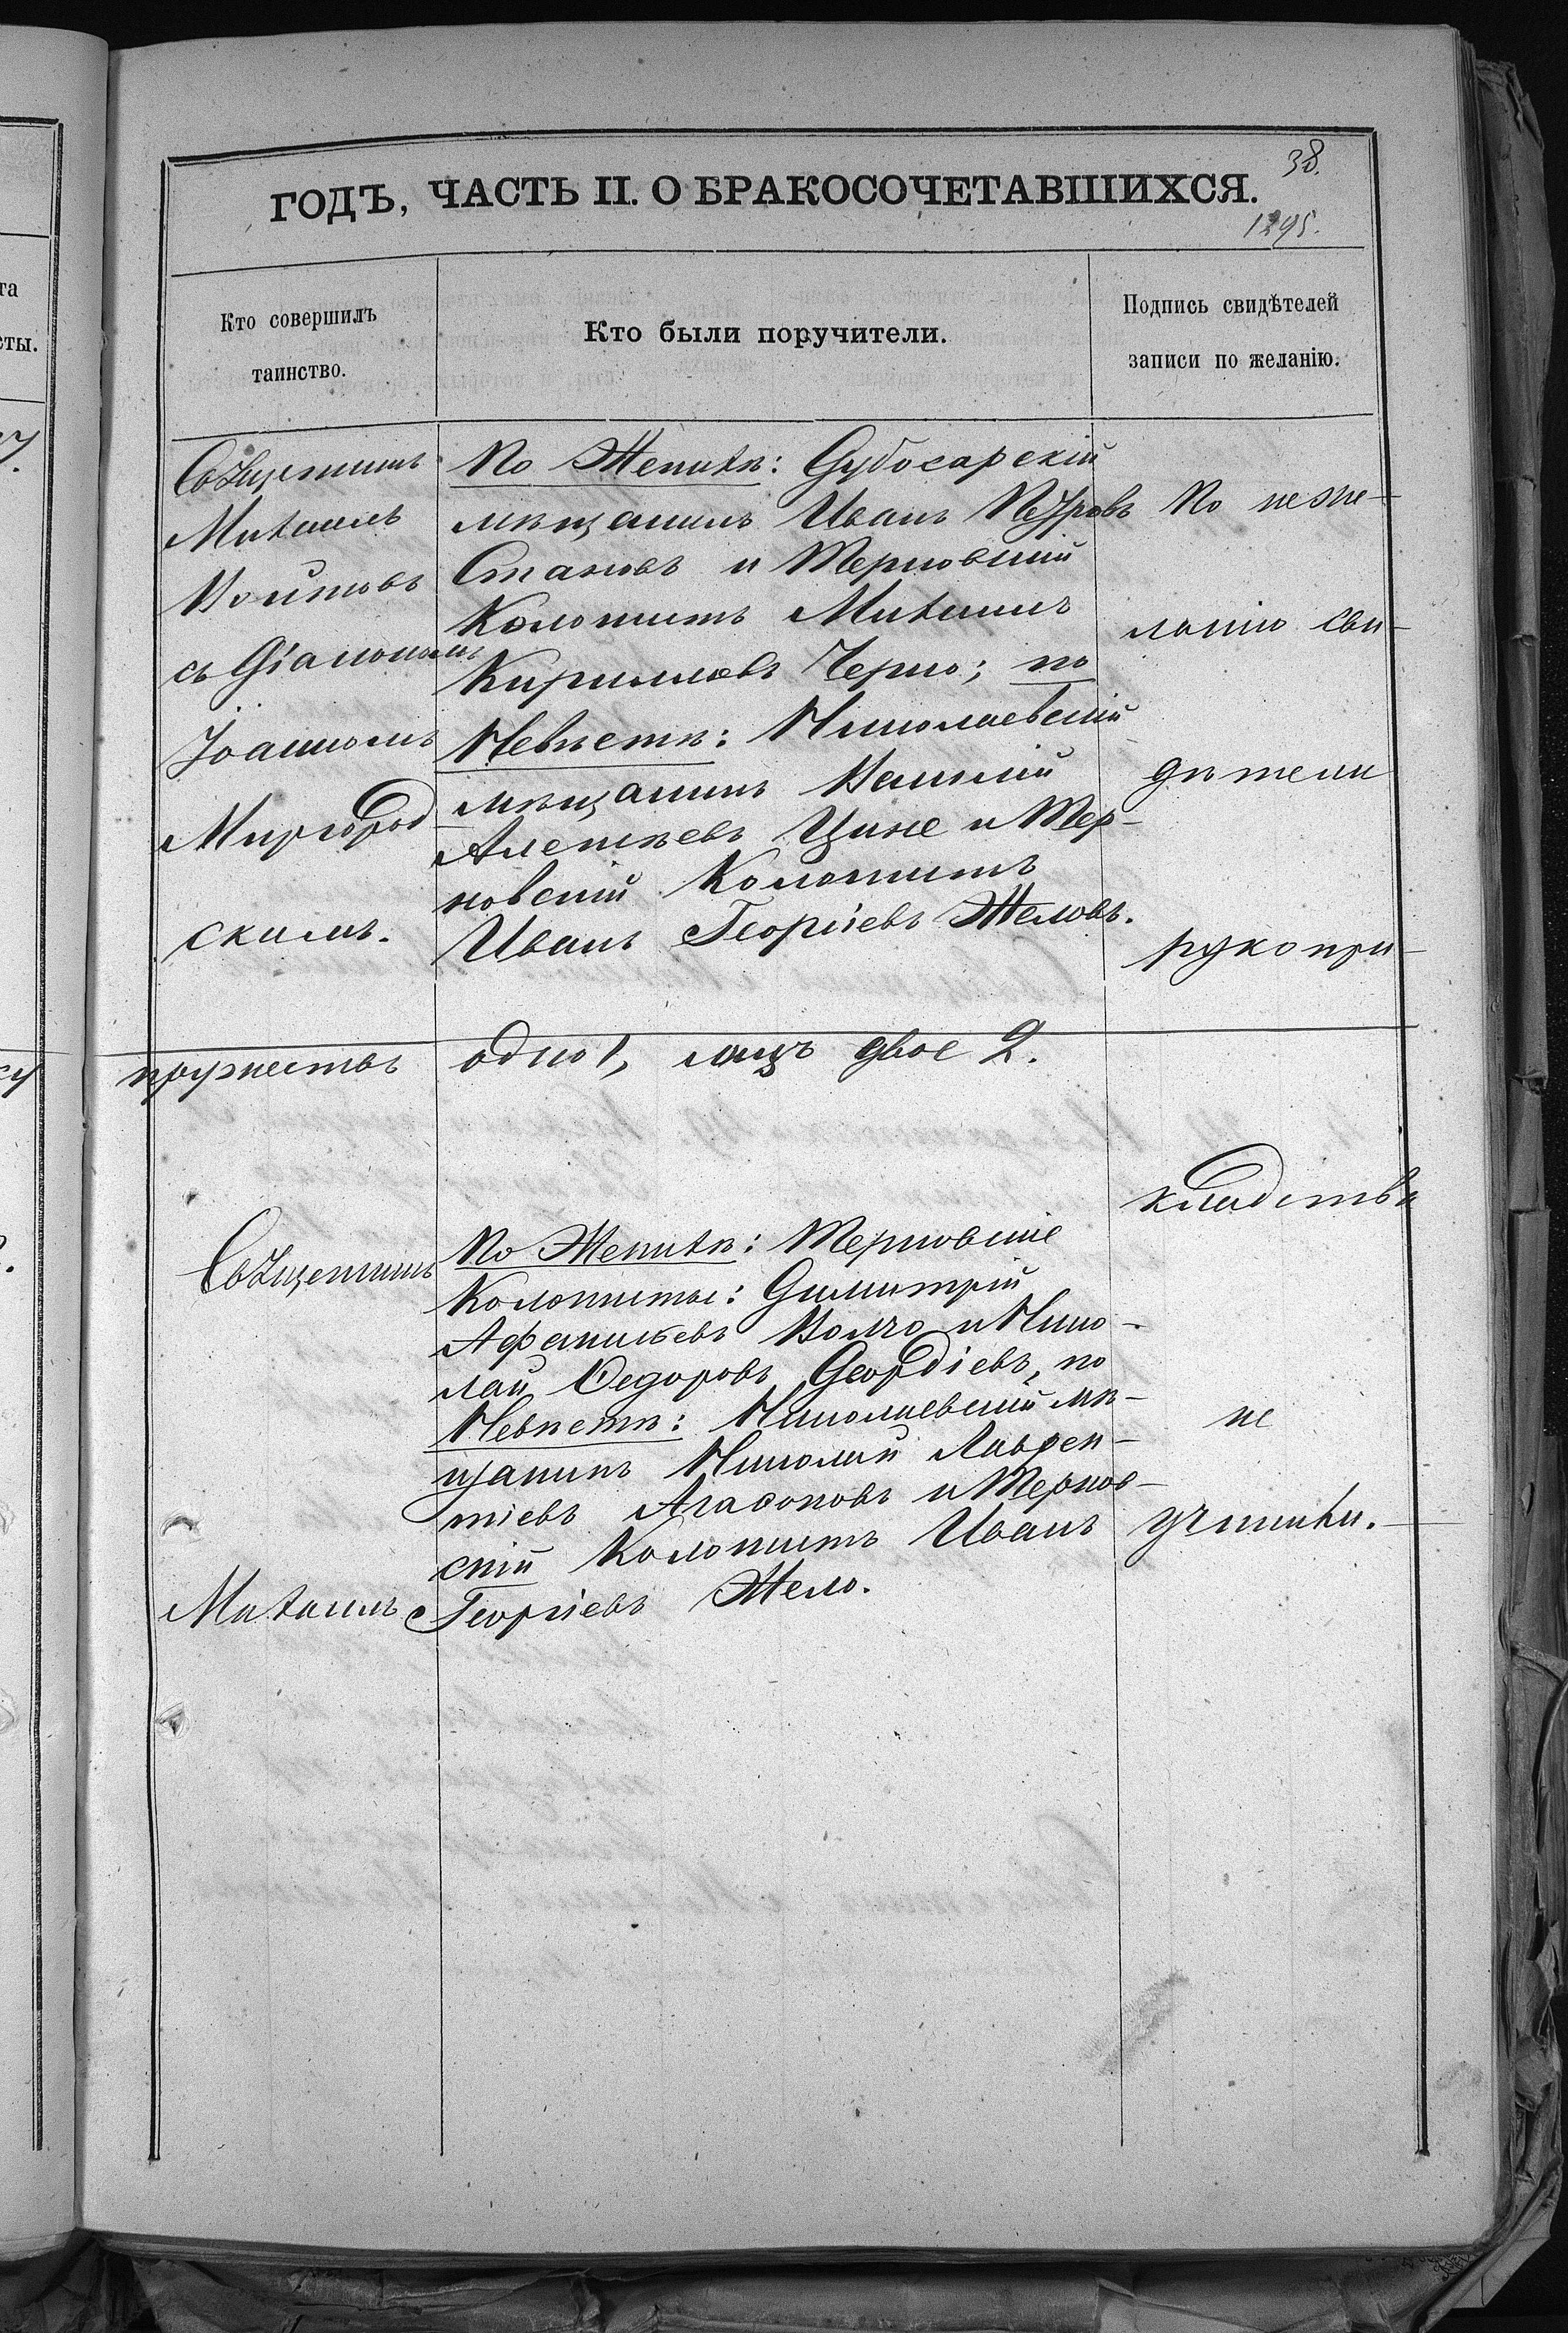 38.
ГОДЪ, ЧАСТЬ II. О БРАКОСОЧЕТАВШИХСЯ.
1295.
та
сты.
Кто совершилъ
таинство.
Кто были поручители.
Подпись свидѣтелей
записи по желанію.
Священникъ
Михаилъ
Войтовъ
съ Діакономъ
Іоанномъ
Миргород
скимъ.
По Женихѣ: Дубосарскій
мѣщанинъ Иванъ Петровъ
Стаховъ и Терновскій
Колонистъ Михаилъ
Кирилловъ Черно; по
Невѣстѣ: Николаевскій
мѣщанинъ Василій
Алексѣевъ и Тер-
новскій Колонистъ
Иванъ Георгіевъ Желовъ.
По неже-
ланію сви-
дѣтели
рукопри-
кладства
не
учинили.
супружествъ одно 1, лицъ двое 2.
Священникъ
Михаилъ
По Женихѣ: Терновскіе
Колонисты: Димитрій
Афанасіевъ Волчо и Нико-
лай Ѳедоровъ Геордіевъ, по
Невѣстѣ: Николаевскій мѣ-
щанинъ Николай Лаврен-
тіевъ Агасоновъ и Тернов-
скій Колонистъ Иванъ
Георгіевъ Жело.